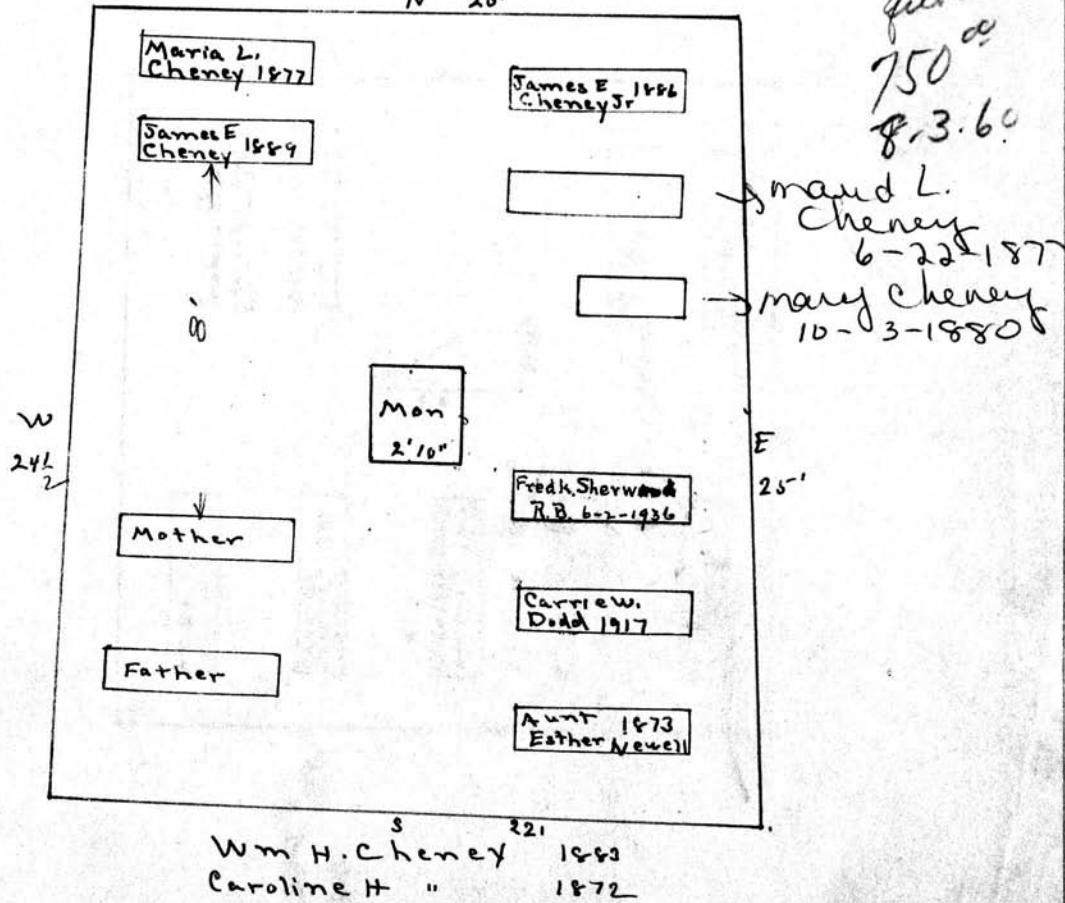 N 20
750 00
8.3.60
Maria L.
Cheney 1877
James E 1886
Cheney Jr
James E
Cheney 1889
maud L.
Cheney
6-22-1877
mary Cheney
10-3-1880
Mon
2'10"
W
24 1/2
E
25'
Fredk. Sherwood
R.B. 6-2-1936
Mother
Carrie W.
Dodd 1917
Father
Aunt 1873
Esther Newell
S 221
Wm H. Cheney 1883
Caroline H " 1872